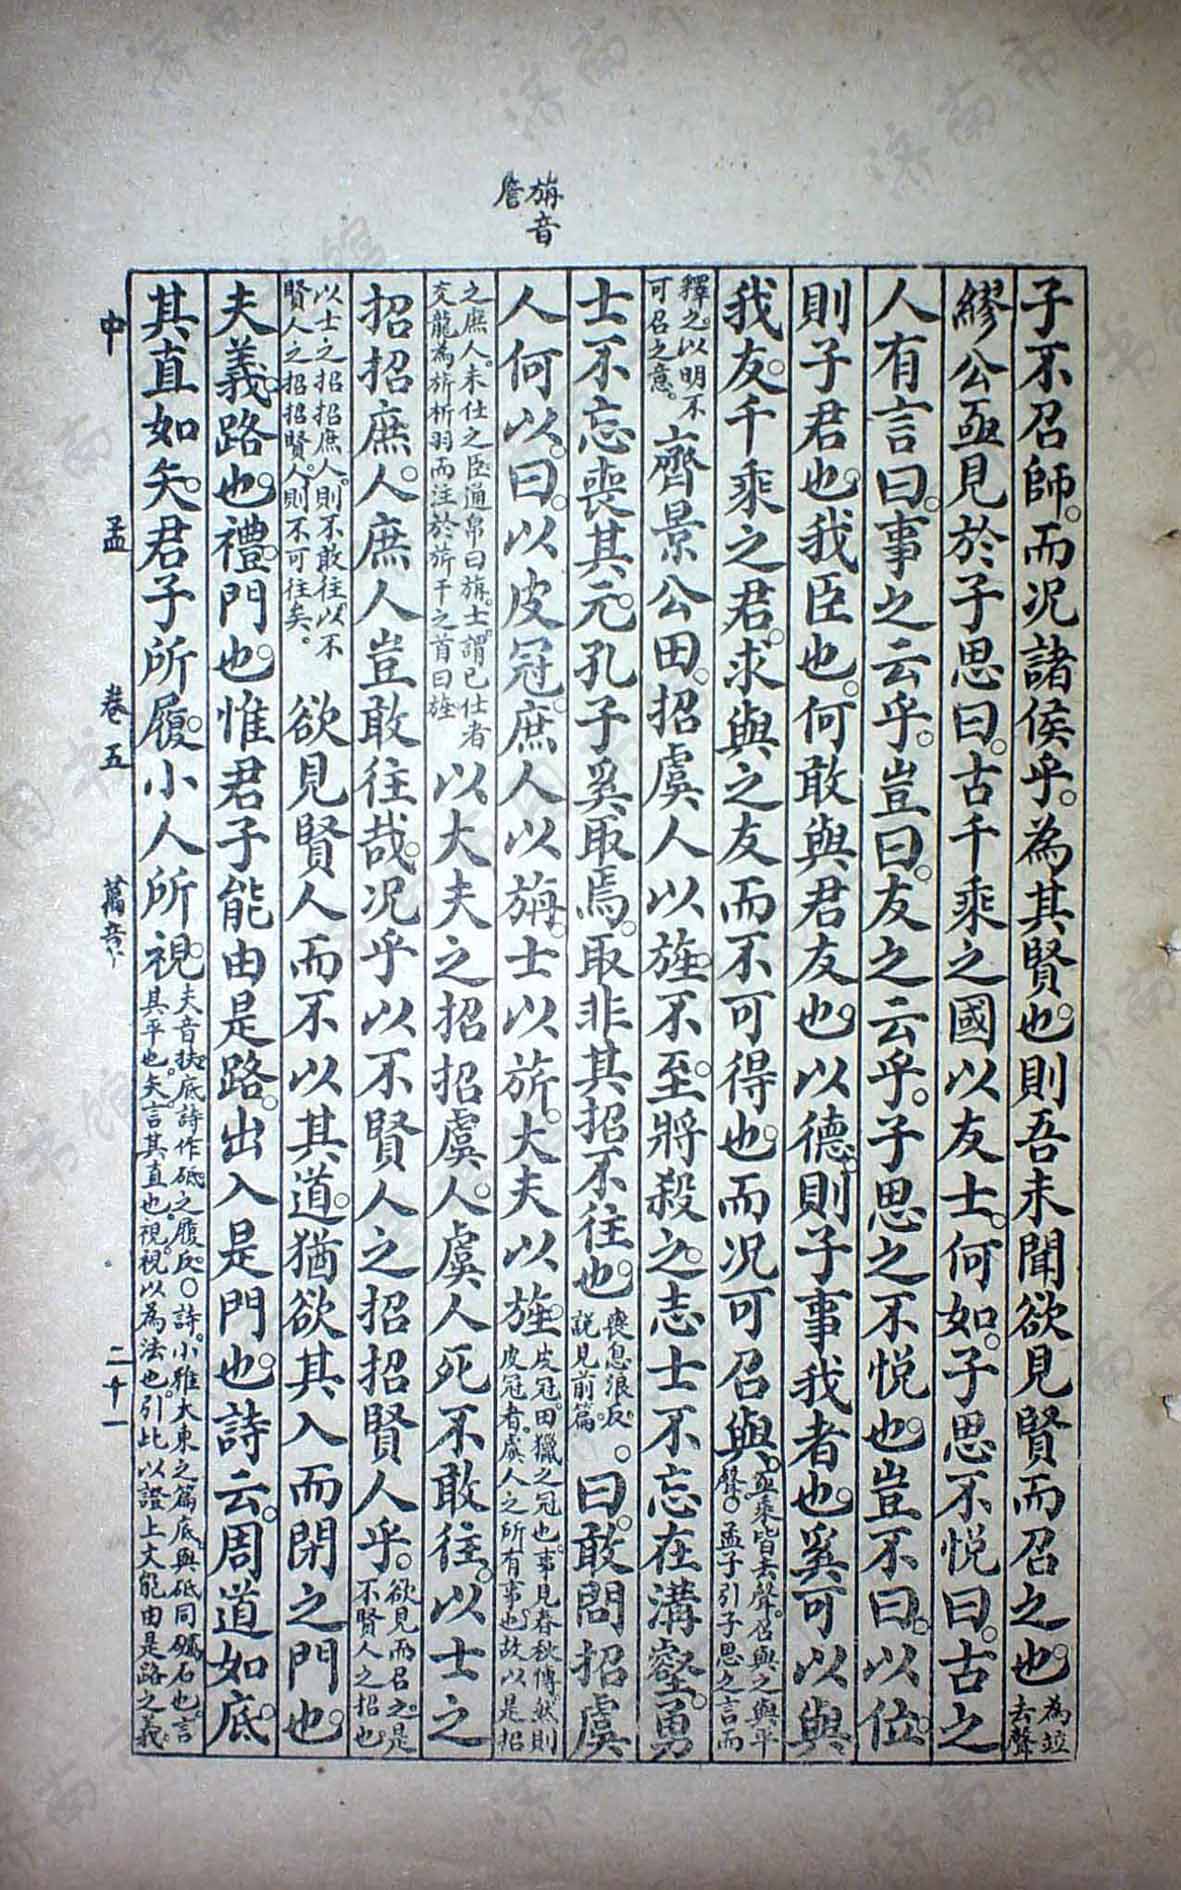 旃音
詹
子不召師。而況諸侯乎。為其賢也。則吾未聞欲見賢而召之也。為竝去聲
繆公亟見於子思曰。古千乘之國以友士。何如。子思不悅曰。古之
人有言曰。事之云乎。豈曰。友之云乎。子思之不悅也。豈不曰。以位。
則子君也。我臣也。何敢與君友也。以德。則子事我者也。奚可以與
我友。千乘之君。求與之友而不可得也。而況可召與。亟乘皆去聲。召與之與平聲。○孟子引子思之言而
釋之。以明不可召之意。齊景公田。招虞人以旌。不至。將殺之。志士不忘在溝壑。勇
士不忘喪其元。孔子奚取焉。取非其招不往也。喪息浪反。說見前篇。○曰。敢問招虞
人何以。曰。以皮冠。庶人以旃。士以旂。大夫以旌。皮冠。田獵之冠也。事見春秋傳。然則皮冠者。虞人之所有事也。故以是招
之庶人。未仕之臣。通帛曰旃。士。謂已仕者交龍為旂析羽而注於旂干之首曰旌以大夫之招招虞人。虞人死不敢往。以士之
招招庶人。庶人豈敢往哉。況乎以不賢人之招招賢人乎。欲見而召之。是不賢人之招也。
以士之招招庶人。則不敢往。以不賢人之招招賢人。則不可往矣。欲見賢人而不以其道。猶欲其入而閉之門也。
夫義。路也。禮。門也。惟君子能由是路。出入是門也。詩云。周道如底。
其直如矢。君子所履。小人所視。夫音扶。底詩作砥。之履反。○詩。小雅大東之篇。底。與砥同。礪石也。言其平也。矢。言其直也。視。視以為法也。引此以證上文能由是路之義。
中 孟 卷五 萬章下 二十一